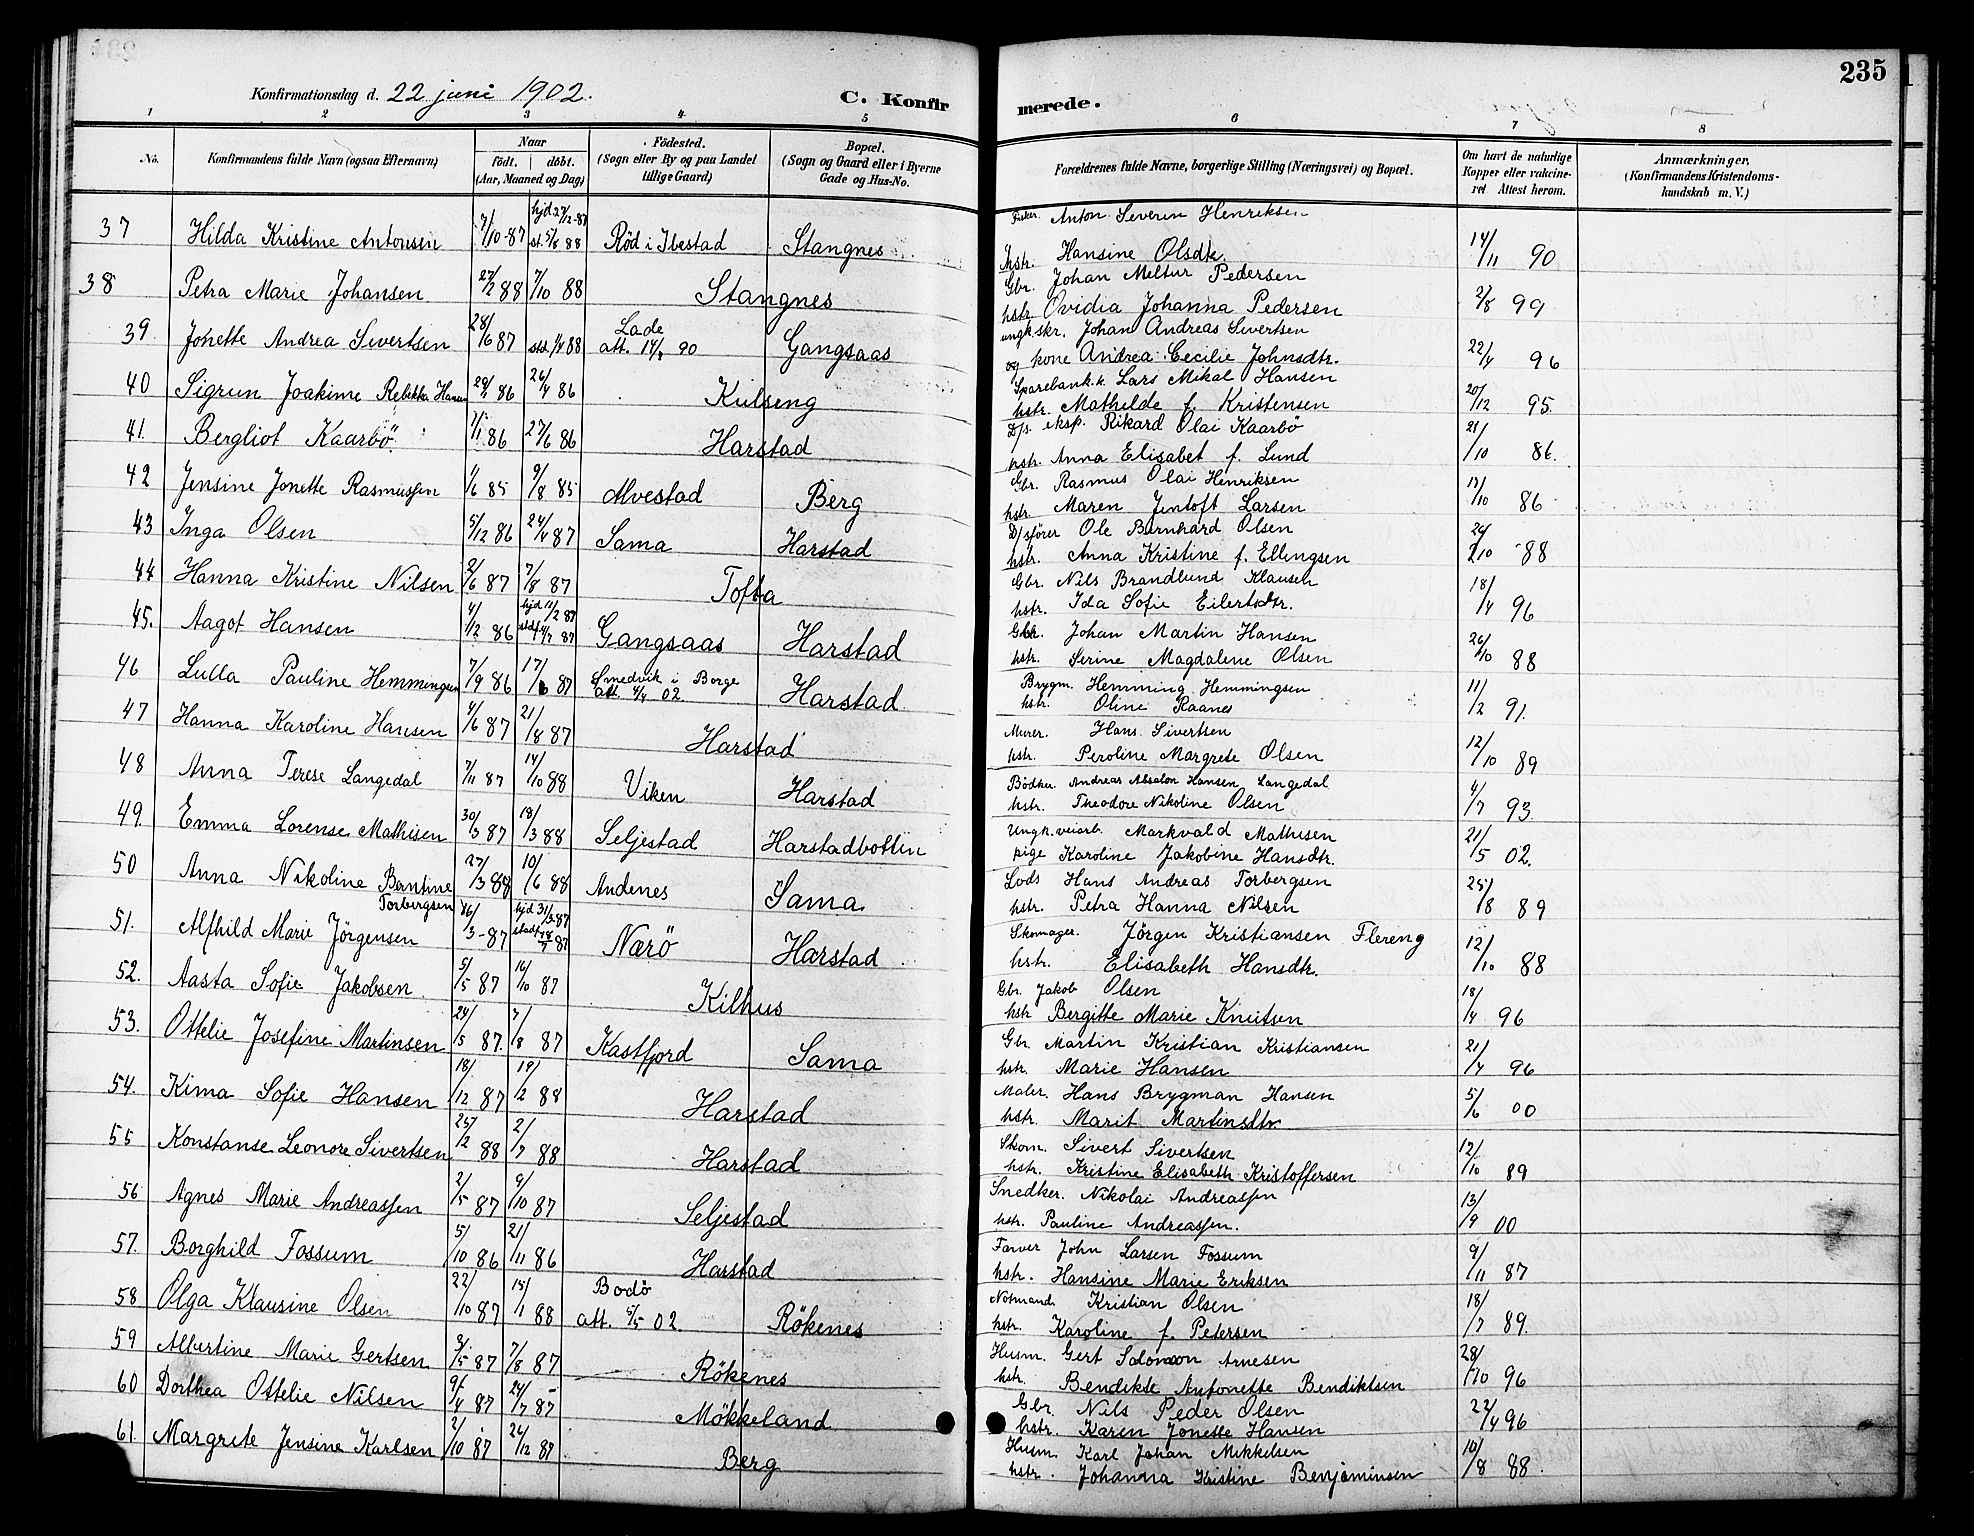 Konfirmationsdag d. 22 juni 1902.
C. Konfirmerede.
235
1 2 3 4 5 6 7 8
No. Konfirmandens fulde Navn (ogsaa Efternavn) Naar født. døbt. (Aar, Maaned og Dag) Fødested. (Sogn eller By og paa Landet tillige Gaard) Bopæl. (Sogn og Gaard eller i Byerne Gade og Hus-No. Forældrenes fulde Navne, borgerlige Stilling (Næringsvei) og Bopæl. Om havt de naturlige Kopper eller vaccineret Attest herom. Anmærkninger. (Konfirmandens Kristendomskundskab m. V.)
37 Hilda Kristine Antonsen 7/10-87 hjd 27/12-87 st. 5/8 88 Röd i Ibestad Stangnes Fisker. Anton Severin Henriksen
hstr. Hansine Olsdtr. 14/11 90
38 Petra Marie Johansen 27/2 88 7/10 88 Stangnes Gbr. Johan Meltur Pedersen
hstr. Ovidia Johanna Pedersen 2/8 99
39. Jonette Andrea Sivertsen 28/6 87 88 Lade att. 90 Gangsaas ungk.skr. Johan Andreas Sivertsen
og kone Andrea Cecilie Johnsdtr. 22/4 96
40 Sigrun Joakime Rebekka Hansen 86 26/4 86 Kulseng Sparebank.k. Lars Mikal Hansen
hstr. Mathilde f. Kristensen 20/12 95.
41. Bergliot Kaarbö. 86 27/6 86 Harstad D/s. eksp. Rikard Olai Kaarbö
hstr. Anna Elisabet f. Lund 21/10 86.
42 Jensine Jonette Rasmussen 1/6 85 9/8 85 Alvestad Berg Gbr. Rasmus Olai Henriksen
hstr. Maren Jentoft Larsen 17/10 86
43 Inga Olsen 5/12 86 24/4 87 Sama Harstad D/sförer Ole Bernhard Olsen
hstr. Anna Kristine f. Ellingsen 88
44 Hanna Kristine Nilsen 2/6 87 7/8 87 Tofta Gbr. Nils Brandlund Klausen
hstr. Ida Sofie Eilertsdtr. 18/4 96
45. Aagot Hansen 4/12 86 hjd 87 87 Gangsaas Harstad Gbr. Johan Martin Hansen
hstr. Serine Magdalene Olsen 26/10 88
46 Lulla Pauline Hemmingsen 7/9 86 17/6 87 Smedvik i Borge att. 4/4 02 Harstad. Brygm. Hemming Hemmingsen
hstr. Oline Raanes 11/2 91.
47 Hanna Karoline Hansen 4/6 87 21/8 87 Harstad Murer. Hans Sivertsen
hstr. Peroline Margrete Olsen 12/10 89
48 Anna Terese Langedal 7/11 87 14/10 88 Viken Harstad Bödker. Andreas Absalon Hansen Langedal
hstr. Theodore Nikoline Olsen 4/7 93.
49. Emma Lorense Mathisen 30/3 87 18/3 88 Seljestad Harstadbotten Ungk.veiarb. Markvald Mathisen
pige Karoline Jakobine Hansdtr. 21/5 02.
50 Anna Nikoline Berntine Torbergsen 27/3 88 10/6 88 Andenes Sama. Lods Hans Andreas Torbergsen
hstr. Petra Hanna Nilsen 25/8 89
51. Alfhild Marie Jörgensen 16/3-87 hjd 31/3-87 87 Nærö Harstad Skomager. Jörgen Kristiansen Flereng
hstr. Elisabeth Hansdtr. 12/10 88
52. Aasta Sofie Jakobsen. 5/5 87 16/10 87 Kilhus Gbr. Jakob Olsen
hstr Bergitte Marie Knutsen 18/4 96
53. Ottelie Josefine Martinsen 24/5 87. 7/8 87 Kastfjord Sama Gbr. Martin Kristian Kristiansen
hstr. Marie Hansen 21/4 96
54. Kima Sofie Hansen 18/12 87 19/2 88 Harstad Maler. Hans Brygman Hansen
hstr. Marit Martinsdtr 5/6 00
55 Konstanse Leonore Sivertsen 25/2 88 2/7 88 Harstad Skom. Sivert Sivertsen
hstr. Kristine Elisabeth Kristoffersen 12/10 89
56 Agnes Marie Andreassen 2/5 87 9/10 87 Seljestad Snedker. Nikolai Andreassen
hstr. Pauline Andreassen. 13/9 00
57. Borghild Fossum 5/10 86 21/11 86 Harstad Farver John Larsen Fossum
hstr. Hansine Marie Eriksen 9/11 87
58 Olga Klausine Olsen 22/10 87 15/1 88 Bodö att. 5/5 02. Rökenes Notmand Kristian Olsen
hstr. Karoline f. Petersen 18/7 89.
59 Albertine Marie Gertsen 3/5 87 7/8 87 Rökenes Husm. Gert Salomon Arnesen
hstr. Bendikte Antonette Bendiktsen 28/10 96
60 Dorthea Ottelie Nilsen 9/4 87 24/7 87 Mökkeland Gbr. Nils Peder Olsen
hstr. Karen Jonette Hansen 22/4 96
61 Margrete Jensine Karlsen 2/10 87 26/12 87 Berg Husm. Karl Johan Mikkelsen
hstr. Johanna Kristine Benjaminsen 10/8 88.